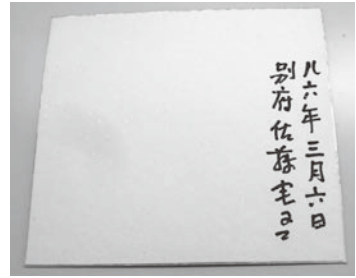 八六年三月六日
別府佐藤宅ヨリ